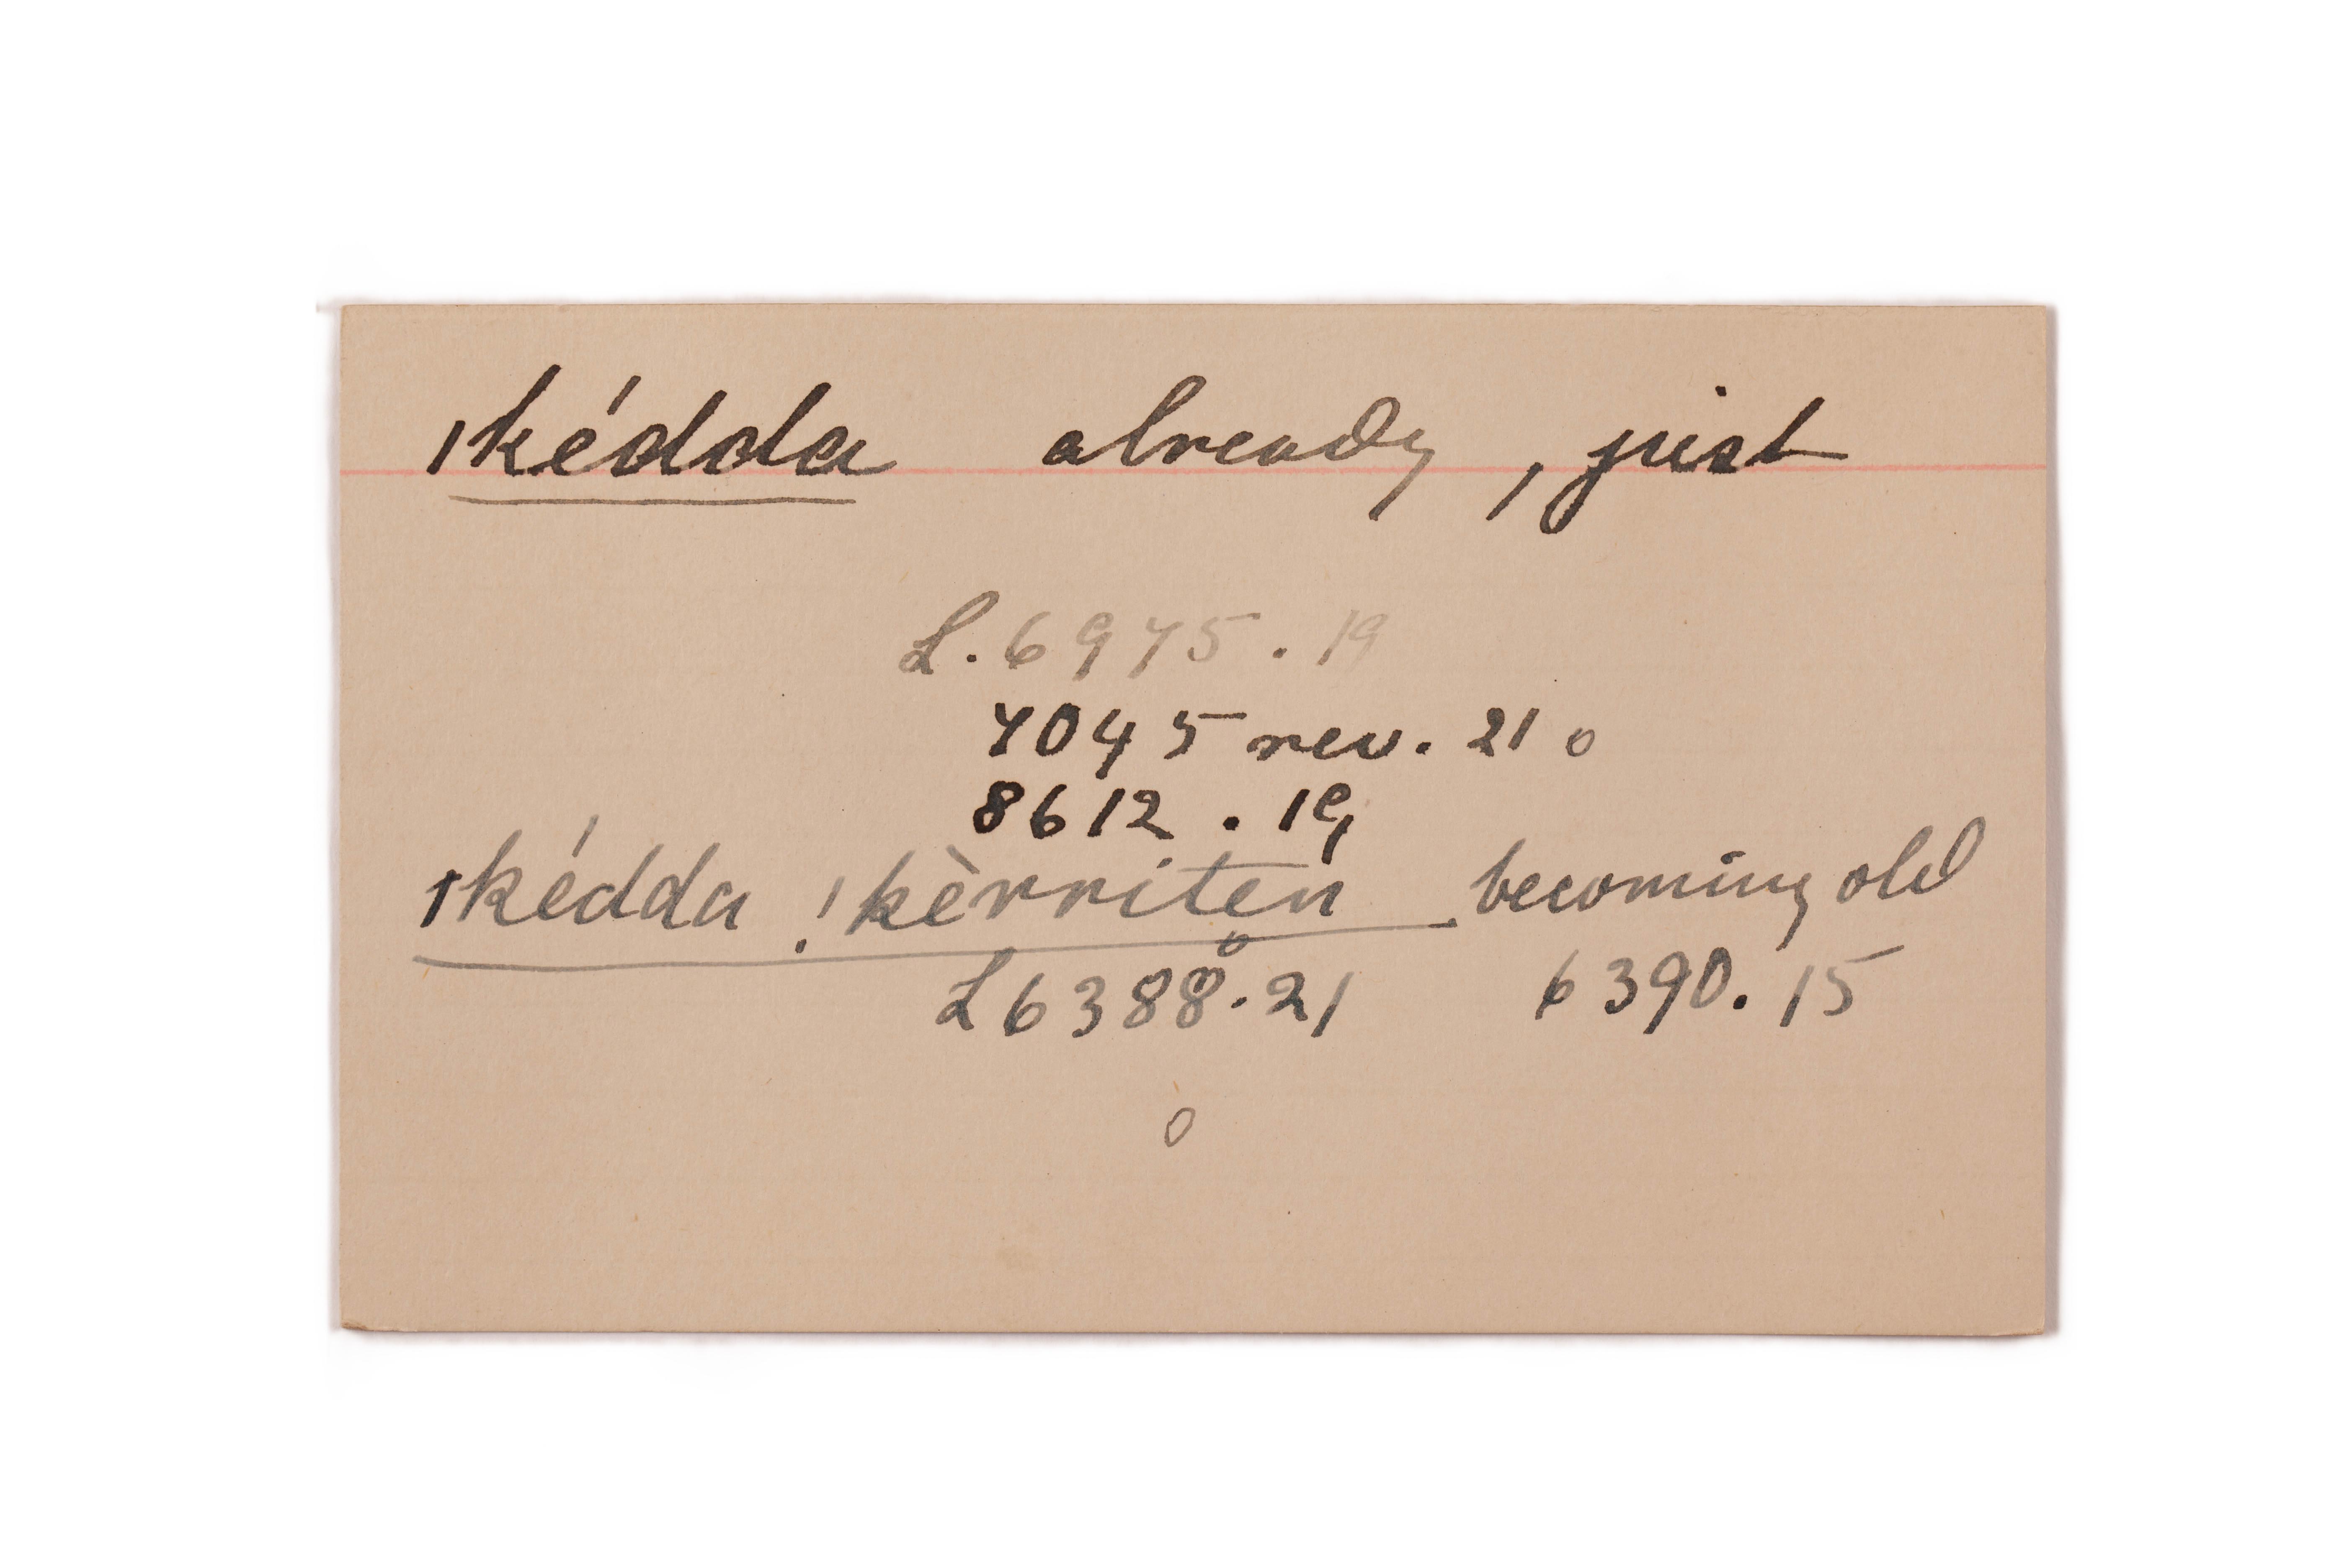 ǀkédda already, just
L. 6975. 19
7045 rev. 21 o
8612. 19
ǀkédda ǃkèrriten becoming old
L 6388. 21 6390. 15
o